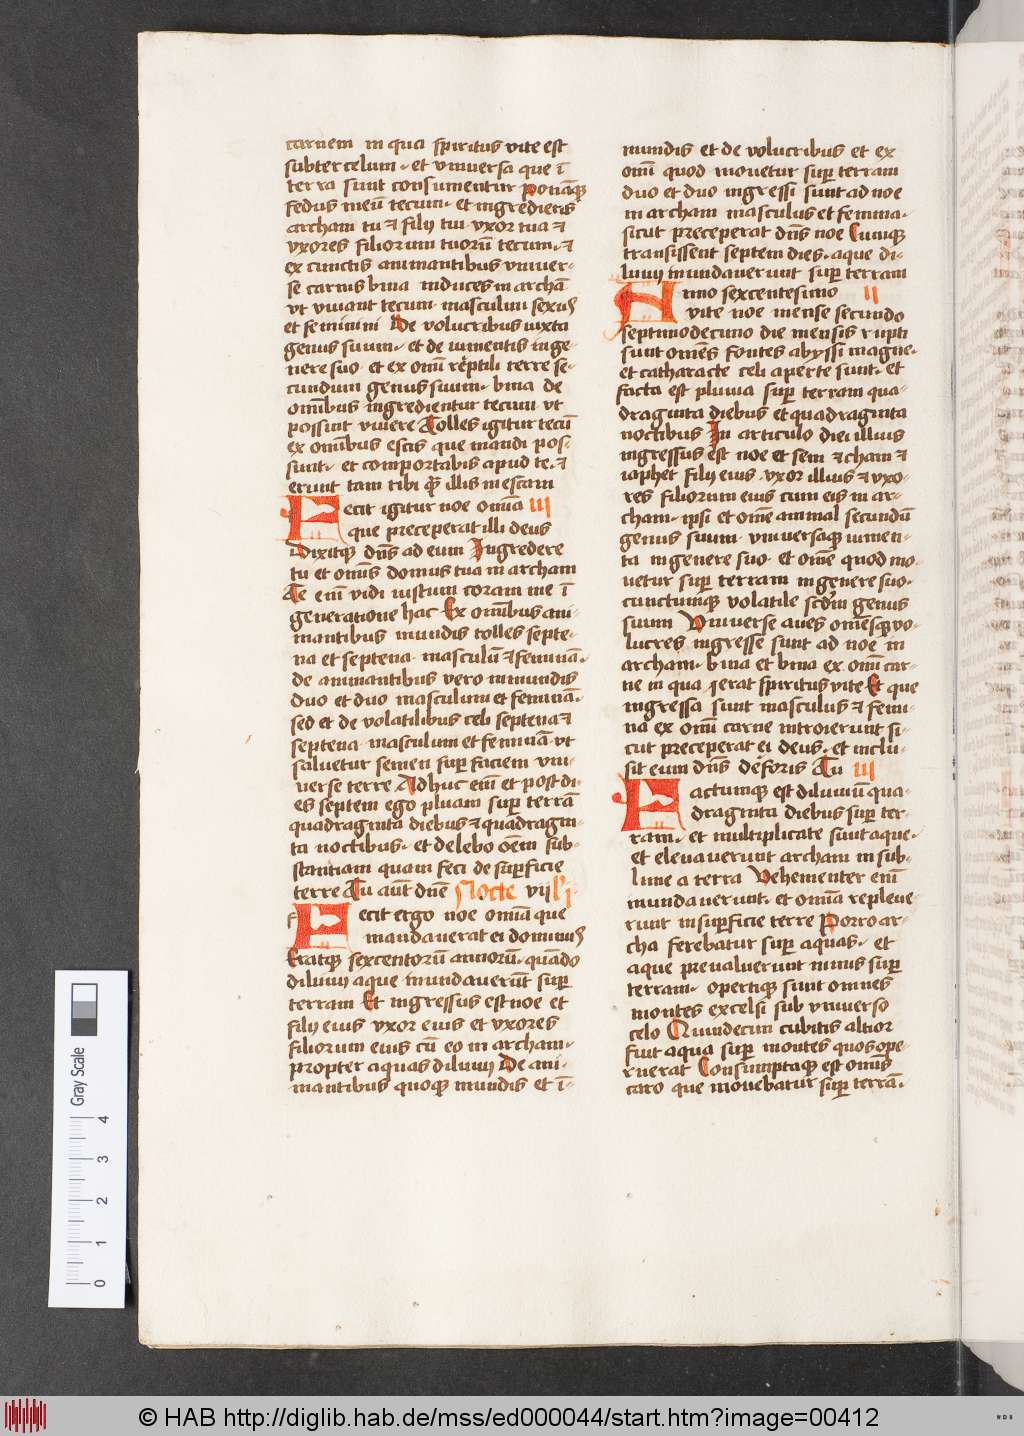 carnem in qua spiritus vite est
subter celum · et vniuersa que ī
terra sunt consumentur Ponāqꝫ
fedus meū tecum · et ingredieris
archam tu ⁊ filij tui · vxor tua ⁊
vxores filiorum tuorū tecum · ⁊
ex cunctis animantibus vniuer-
se carnis bina induces in archā
vt viuant tecum · masculini sexus
et feminini De volucribus iuxta
genus suum · et de iumentis in ge-
nere suo · et ex omī reptili terre se-
cundum genus suum · bina de
omībus ingredientur tecum vt
possint viuere Tolles igitur tecū
ex omībus escis que mandi pos-
sunt · et comportabis apud te · ⁊
erunt tam tibi qͣ illis in escam
Fecit igitur noe omīa III
que preceperat illi deus
Dixitqꝫ dn̄s ad eum Ingredere
tu et omīs domus tua in archam
Te em̄ vidi iustum coram me ī
generatione hac Ex omībus ani-
mantibus mundis tolles septe-
na et septena · masculū ⁊ feminā ·
de animantibus vero inmundis
duo et duo masculinum et feminā ·
sed et de volatilibus celi septena ⁊
septena · masculum et feminā · vt
saluetur semen suꝑ faciem vni-
uerse terre Adhuc em̄ et post di-
es septem ego pluam suꝑ terrā
quadraginta diebus ⁊ quadragin-
ta noctibus · et delebo oēm sub-
stantiam quam feci de suꝑficie
terre Tu aūt dn̄e Nocte vij l'j
Fecit ergo noe omīa que
mandauerat ei dominus
Eratqꝫ sexcentorū annorū · quādo
diluuij aque inundauerūt suꝑ
terram Et ingressus est noe et
filij eius vxor eius et vxores
filiorum eius cū eo in archam ·
propter aquas diluuij De ani-
mantibus quoqꝫ mundis et ī-
mundis et de volucribus et ex
omī quod mouetur suꝑ terram
duo et duo ingressi sunt ad noe
in archam masculus et femina ·
sicut preceperat dn̄s noe Cumqꝫ
transissent septem dies · aque di-
luuij inundauerunt suꝑ terram
Anno sexcentesimo II
vite noe mense secundo
septimodecimo die mensis rupti
sunt omēs fontes abyssi magne ·
et catharacte celi aperte sunt · et
facta est pluuia suꝑ terram qua-
draginta diebus et quadraginta
noctibus In articulo diei illius
ingressus est noe et sem ⁊ cham ⁊
iaphet filij eius · vxor illius ⁊ vxo-
res filiorum eius cum eis in ar-
cham · ipsi et omē animal secundū
genus suum · vniuersaqꝫ iumen-
ta in genere suo · et omē quod mo-
uetur suꝑ terram in genere suo ·
cunctumqꝫ volatile scdm̄ genus
suum Vniuerse aues omēsqꝫ vo-
lucres ingresse sunt ad noe in
archam · bina et bina ex omī car-
ne in qua erat spiritus vite Et que
ingressa sunt masculus ⁊ femi-
na ex omī carne introierunt si-
cut preceperat ei deus · et inclu-
sit eum dn̄s de foris Tu III
Factumqꝫ est diluuiū qua-
draginta diebus suꝑ ter-
ram · et multiplicate sunt aque ·
et eleuauerunt archam in sub-
lime a terra Vehementer em̄
inundauerunt · et omīa repleue-
runt in suꝑficie terre Porro ar-
cha ferebatur suꝑ aquas · et
aque preualuerunt nimis suꝑ
terram · opertiqꝫ sunt omnes
montes excelsi sub vniuerso
celo Quindecim cubitis altior
fuit aqua suꝑ montes quos ope-
ruerat Consumptaqꝫ est omīs
caro que mouebatur suꝑ terrā ·
Gray Scale
0 1 2 3 4
© HAB http://diglib.hab.de/mss/ed000044/start.htm?image=00412